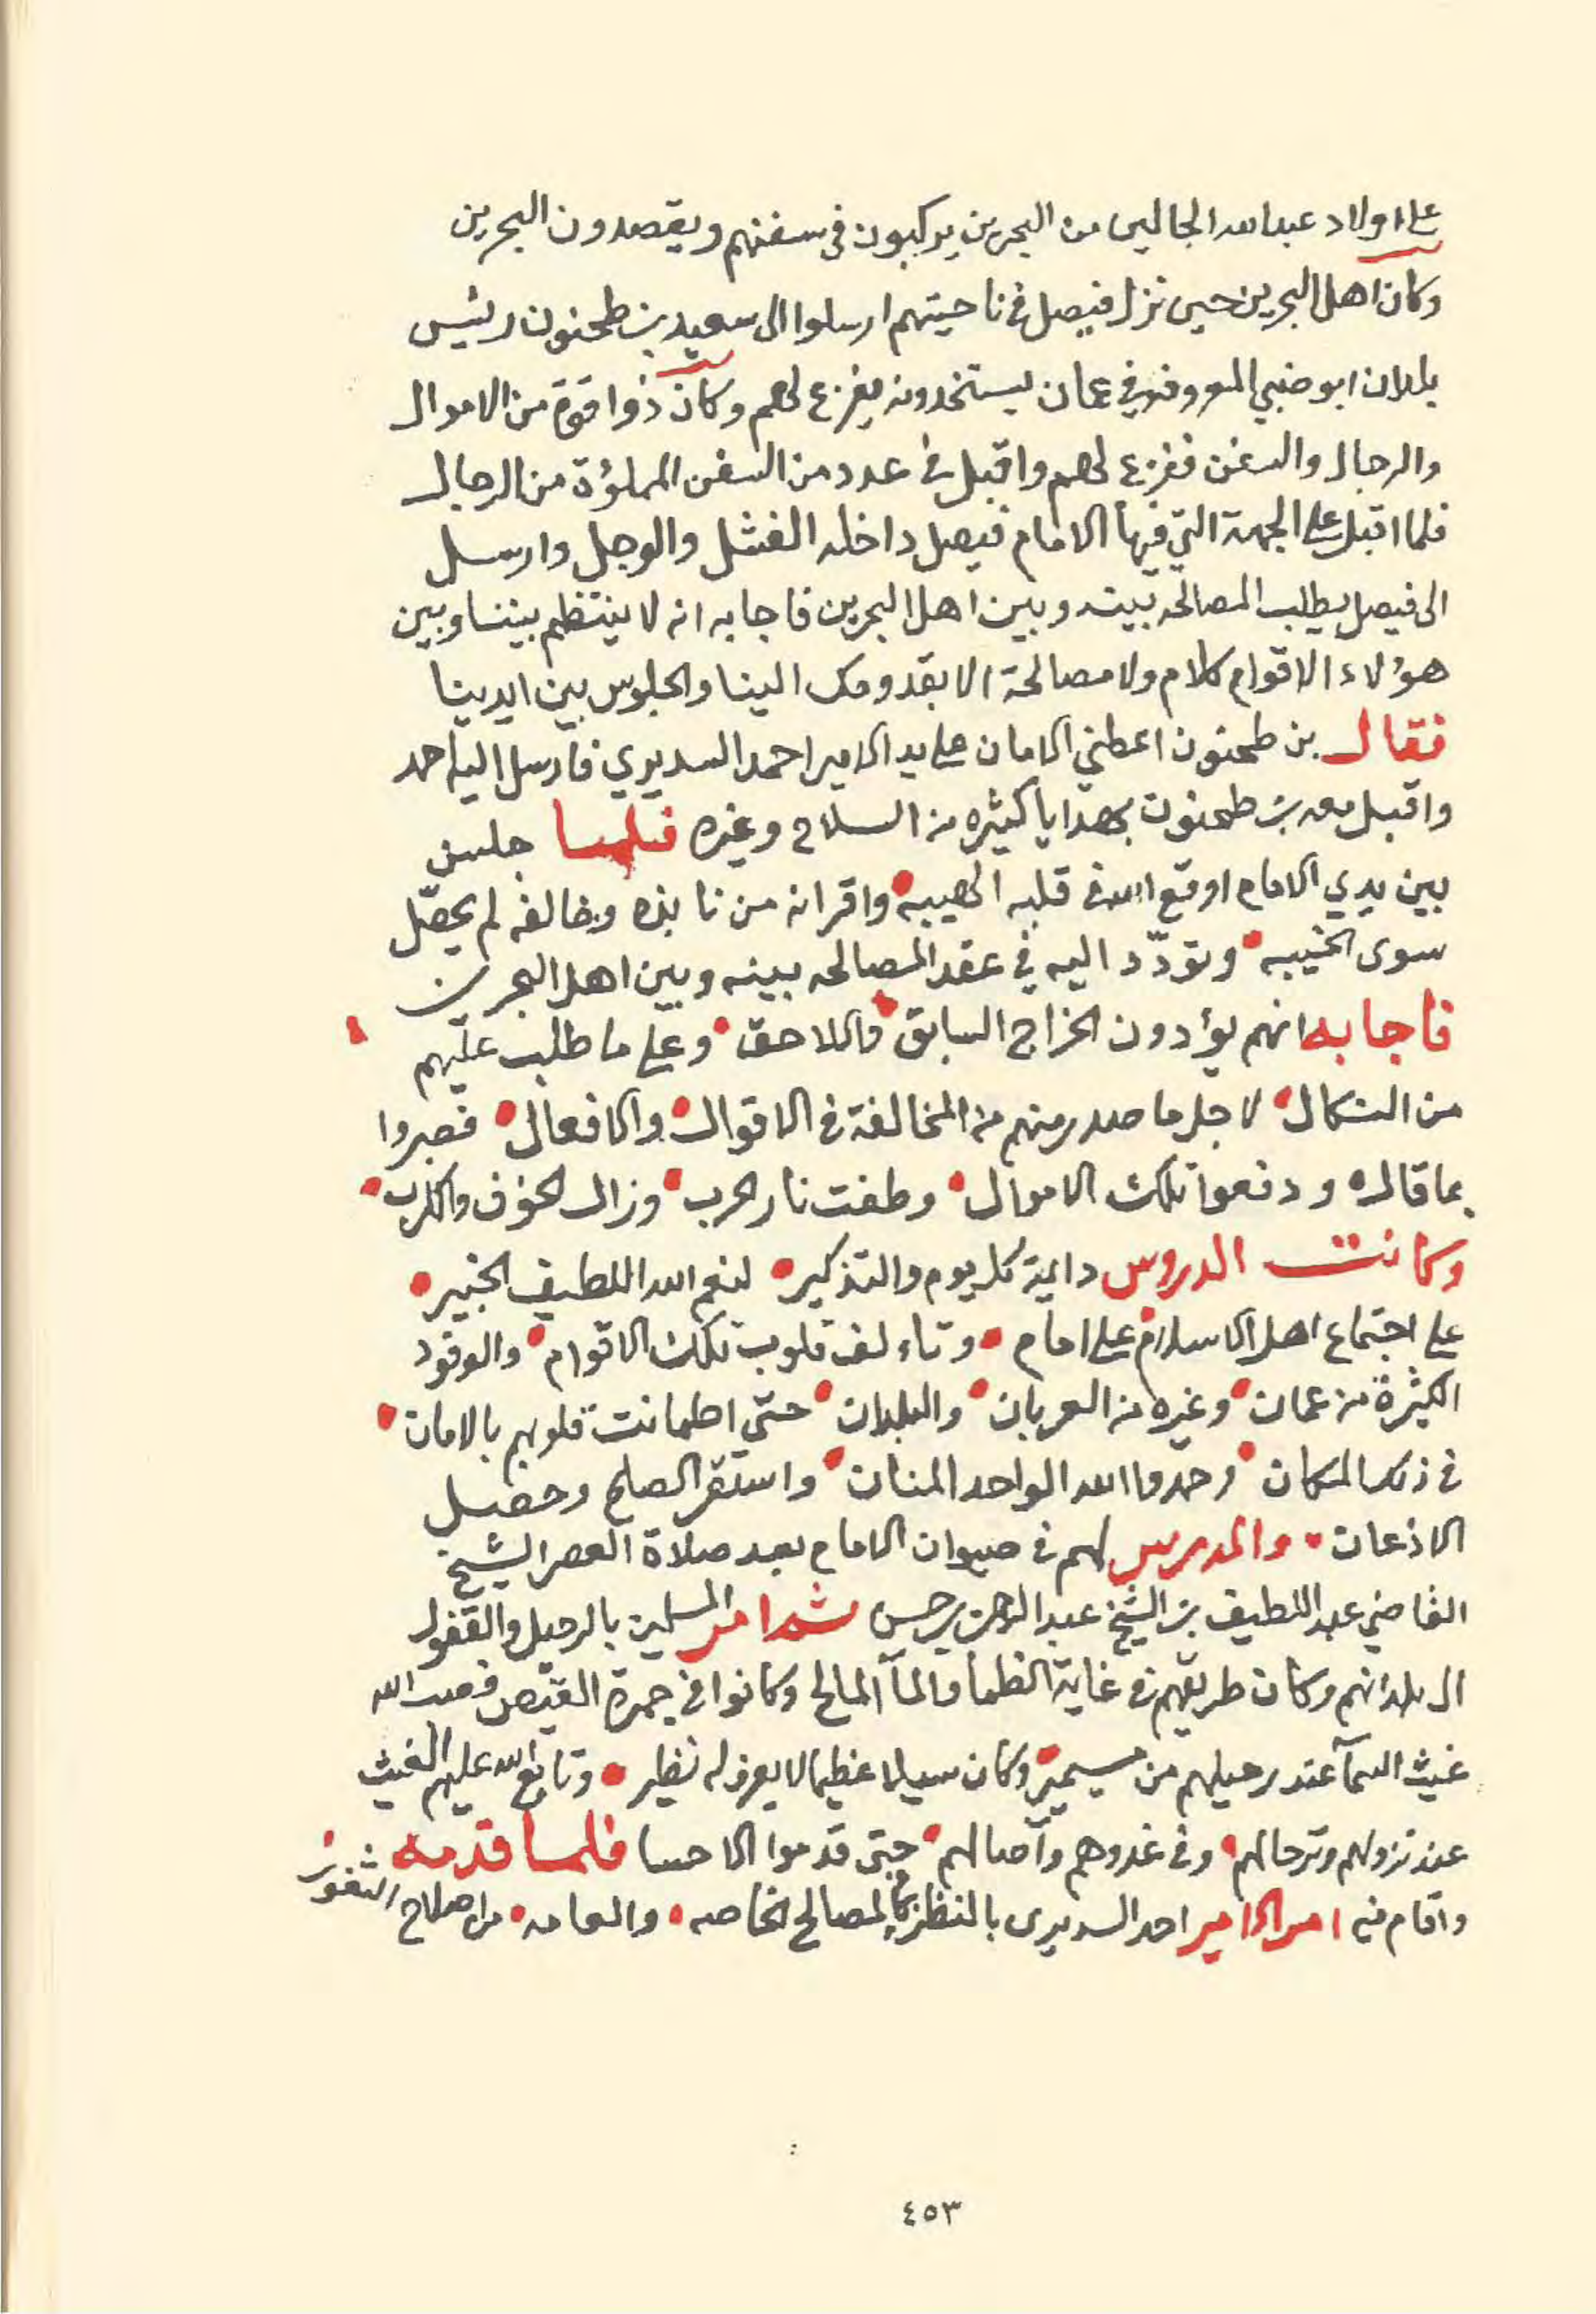 على اولاد عبدالله الجالين من البحرين يركبون في سفنهم ويقصدون البحرين
وكان اهل البحرين حين نزل فيصل في ناحيتهم ارسلوا الى سعيد بن طحنون رئيس
بلدان ابو ضبي المعروفه في عمان يستنجدونه يفزع لهم وكان ذوا قوة من الاموال
والرجال والسفن ففزع لهم واقبل في عدد من السفن المملؤة من الرجال
فلما اقبل على الجهة التي فيها الامام فيصل داخله الفشل والوجل وارسل
الى فيصل يطلب المصالحه بينه وبين اهل البحرين فاجابه انه لا ينتظم بيننا وبين
هؤلاء الاقوام كلام ولا مصالحة الا بقدومك الينا والجلوس بين ايدينا
فقال بن طحنون اعطني الامان على يد الامير احمد السديري فارسل اليه احمد
واقبل معه بن طحنون بهدايا كثيره من السلاح وغيره فلما جلس
بين يدي الامام اوقع الله في قلبه الهيبه واقر انه من نابذه وخالفه لم يحصّل
سوى الخيبه وتودّد اليه في عقد المصالحه بينه وبين اهل البحرين
فاجابه انهم يؤدون الخراج السابق واللاحق وعلى ما طلب عليهم
من النكال لاجل ما صدر منهم من المخالفة في الاقوال والافعال فصبروا
بما قاله ودفعوا تلك الاموال وطفت نار الحرب وزال الخوف والكرب
وكانت الدروس دايمة كل يوم والتذكير لنعم الله اللطيف الخبير
على اجتماع اهل الاسلام على امام وتاءلف قلوب تلك الاقوام والوفود
الكثيرة من عمان وغيره من العربان والبلدان حتى اطمانت قلوبهم بالامان
في ذلك المكان وحمدوا الله الواحد المنان واستقر الصلح وحصل
الاذعان والمدرس لهم في صيوان الامام بعد صلاة العصر الشيخ
القاضي عبد اللطيف بن الشيخ عبد الرحمن بن حسن ثم امر المسلمين بالرحيل والقفول
الى بلدانهم وكان طريقهم في غاية الظما والمآ المالح وكانوا في جمرة القيض فصب الله
غيث السمآ عند رحيلهم من مسيمير وكان سيلا عظيما لا يعرف له نظير وتابع الله عليهم الغيث
عند نزولهم وترحالهم وفي غدوهم وآصالهم حتى قدموا الاحسا فلما قدمه
واقام فيه امر الامير احمد السديري بالنظر في المصالح الخاصه والعامه من اصلاح الثغور
٤٥٣